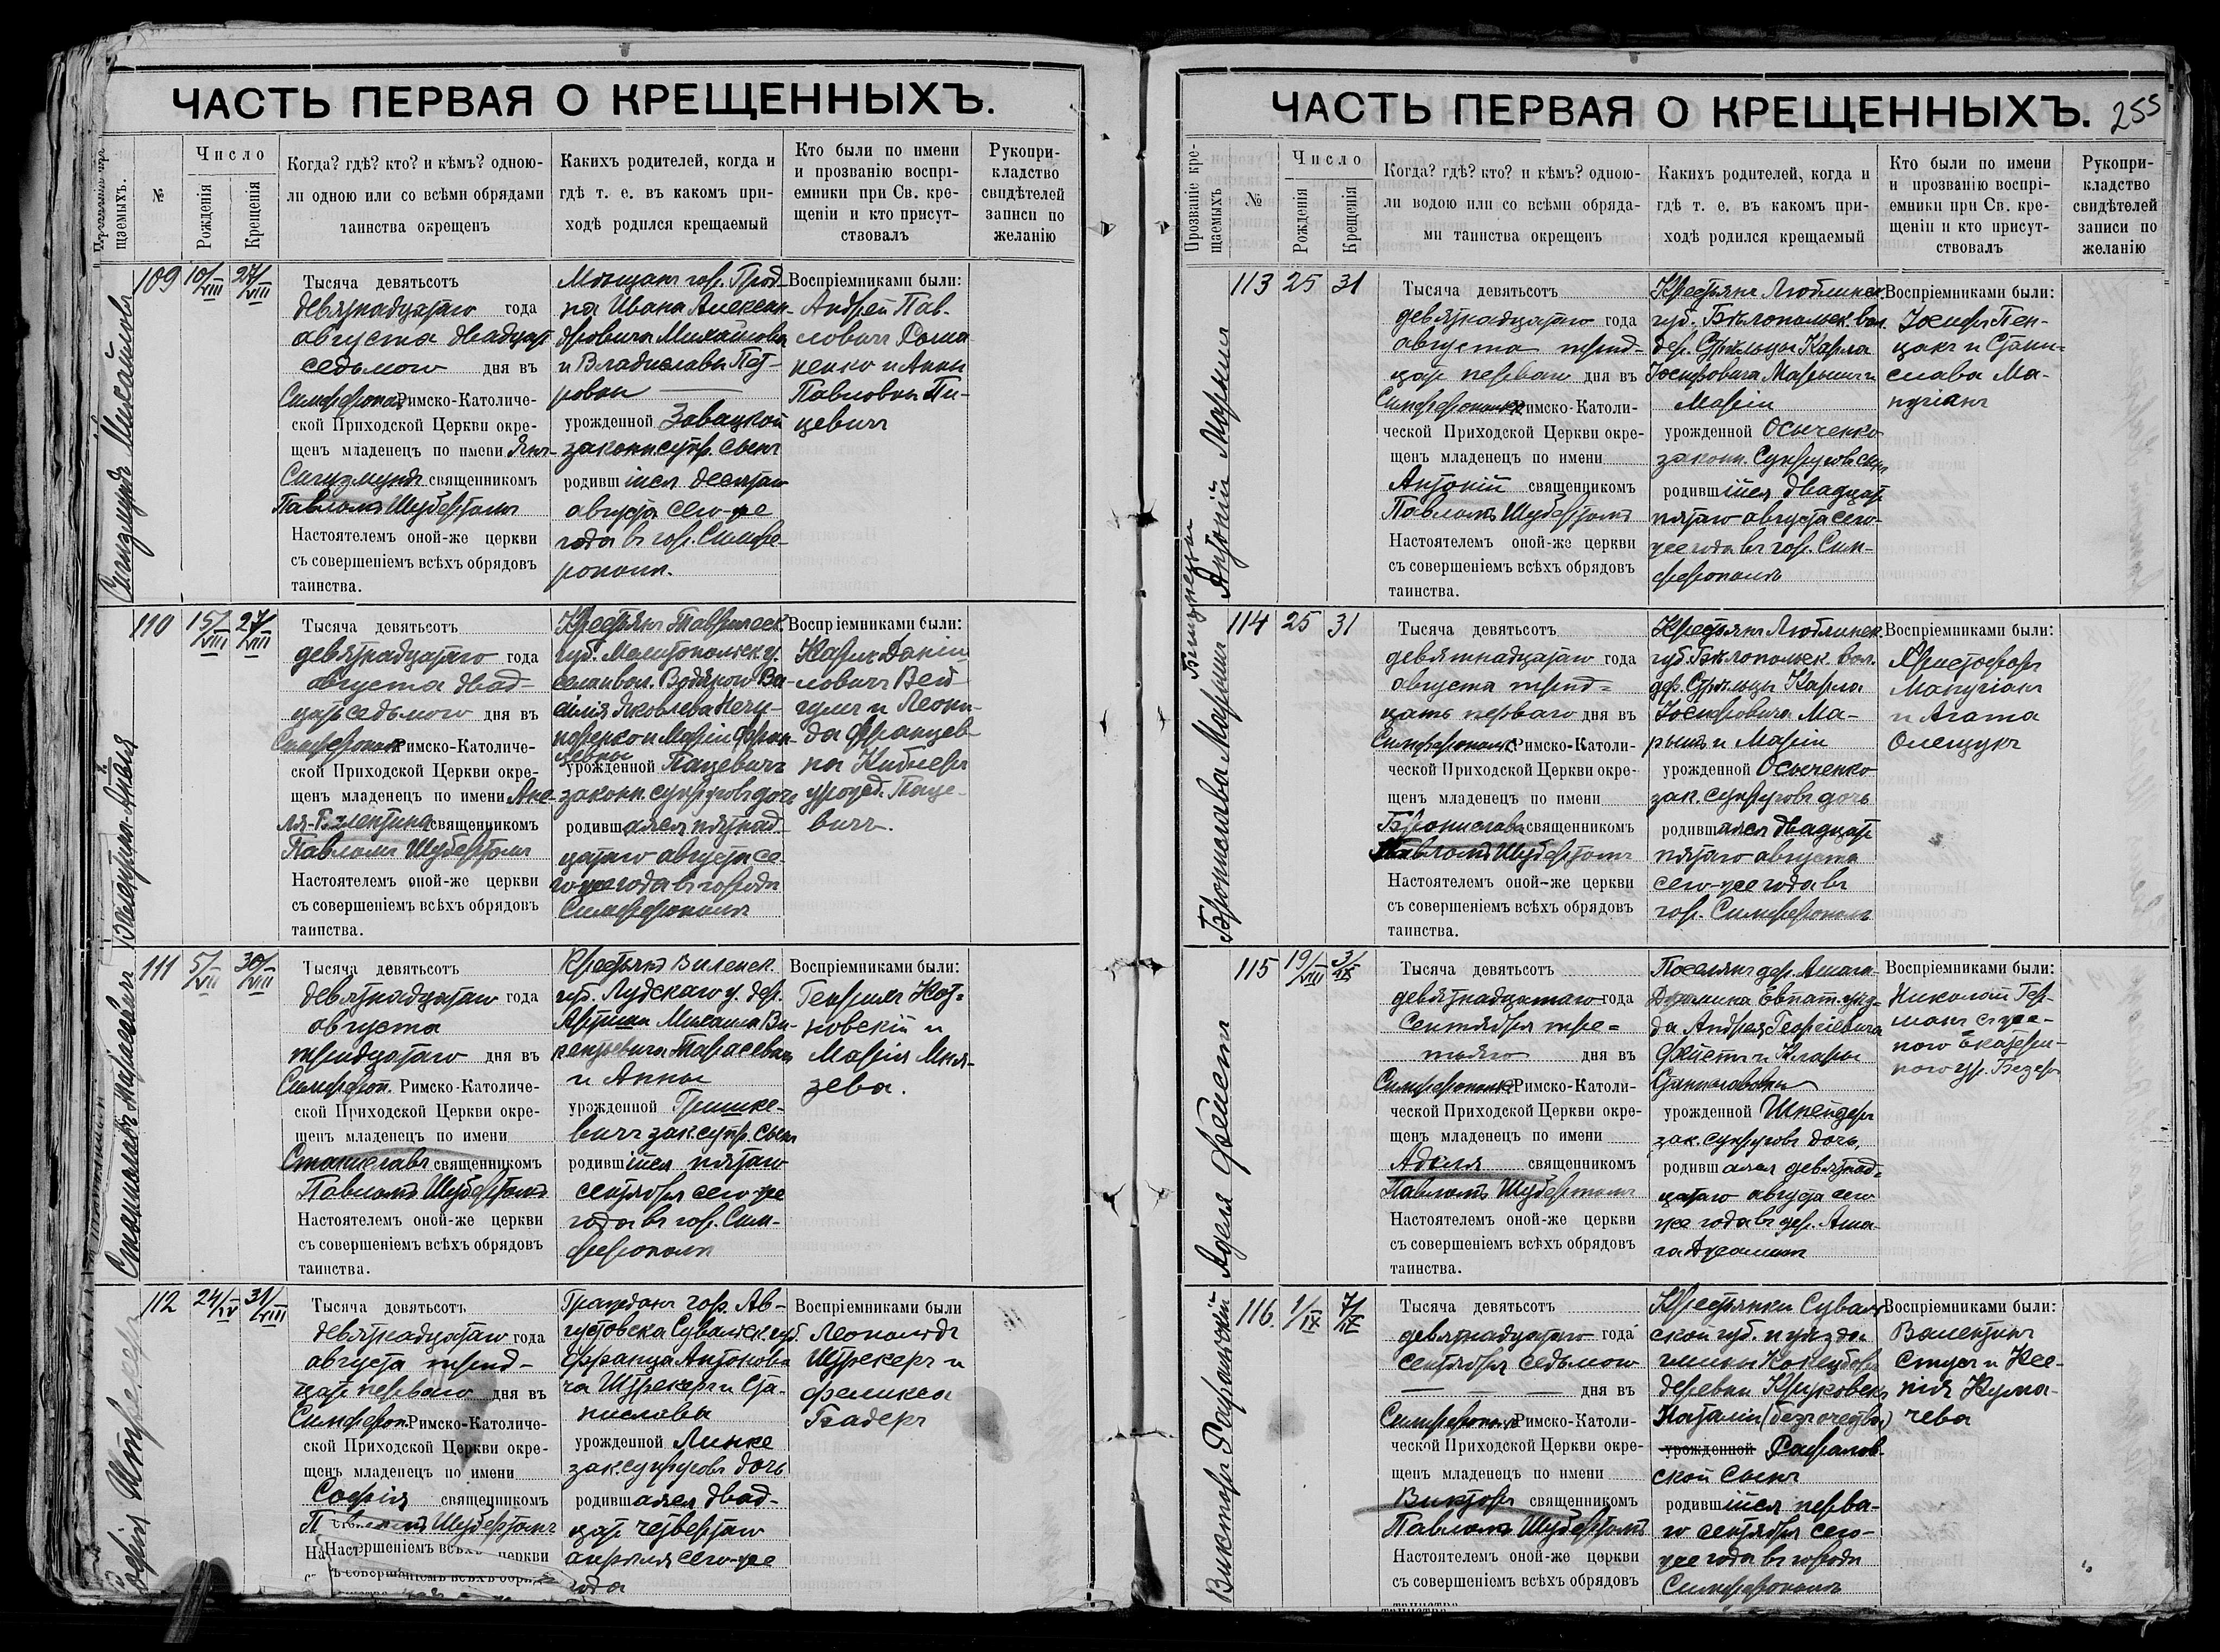 ЧАСТЬ ПЕРВАЯ О КРЕЩЕННЫХЪ.
щаемыхъ.
№
Число
Рожденія
Крещенія
Когда? гдѣ? кто? и кѣмъ? одною-
ли одною или со всѣми обрядами
таинства окрещенъ
Какихъ родителей, когда и
гдѣ т. е. въ какомъ при-
ходѣ родился крещаемый
Кто были по имени
и прозванію воспрі-
емники при Св. кре-
щеніи и кто присут-
ствовалъ
Рукопри-
кладство
свидѣтелей
записи по
желанію
Сигизмундъ Михайловъ
109
10/VIII
27/VIII
Тысяча девятьсотъ
девятнадцатаго года
августа двадцать
седьмого дня въ
Симферопол Римско-Католиче-
ской Приходской Церкви окре-
щенъ младенецъ по имени Янъ-
Сигизмундъ священникомъ
Павломъ Шубертомъ
Настоятелемъ оной-же церкви
съ совершеніемъ всѣхъ обрядовъ
таинства.
Мѣщанъ гор. Грод-
на Ивана Алексан-
дровича Михайлова
и Владиславы Пет-
ровны
урожденной Завацкой
законн. супр. сынъ
родившійся десятаго
августа сего-же
года въ гор. Симфе-
рополѣ.
Воспріемниками были:
Андрей Пав-
ловичъ Рома
ненко и Анны
Павловны Пи-
цевичъ
Валентина-Анеля
110
15/VIII
27/VIII
Тысяча девятьсотъ
девятнадцатаго года
августа двад-
цать седьмого дня въ
Симферопол Римско-Католиче-
ской Приходской Церкви окре-
щенъ младенецъ по имени Ане-
ля-Валентина священникомъ
Павломъ Шубертомъ
Настоятелемъ оной-же церкви
съ совершеніемъ всѣхъ обрядовъ
таинства.
Крестьянъ Таврическ.
губ. Мелитопольск. у.
села и вол. Водяного Ва-
силія Яковлева Нечи-
поренко и Маріи Фран-
цевны
урожденной Пацевичъ
законн. супруговъ дочь
родившаяся пятнад-
цатаго августа се-
го-же года въ городѣ
Симферополѣ
Воспріемниками были:
Карлъ Дани-
ловичъ Вей
гумъ и Леони-
да Францев-
на Кибнеръ
урожд. Паце-
вичъ.
Станиславъ Тарасевичъ
111
5/VII
30/VIII
Тысяча девятьсотъ
девятнадцатаго года
августа
тридцатаго дня въ
Симфероп. Римско-Католиче-
ской Приходской Церкви окре-
щенъ младенецъ по имени
Станиславъ священникомъ
Павломъ Шубертомъ
Настоятелемъ оной-же церкви
съ совершеніемъ всѣхъ обрядовъ
таинства.
Крестьянъ Виленск.
губ. Лидскаго у. дер.
Михаила Ви-
кентьевича Тарасевича
и Анны
урожденной Гришке-
вичъ зак. супр. сынъ
родившійся пятаго
сентября сего-же
года въ гор. Сим-
ферополѣ
Воспріемниками были:
Генрихъ Кот-
новскій и
Марія Мня-
зева.
Софія Штрекеръ
112
24/IV
31/VIII
Тысяча девятьсотъ
девятнадцатаго года
августа трид-
цать перваго дня въ
Симфероп. Римско-Католиче-
ской Приходской Церкви окре-
щенъ младенецъ по имени
Софія священникомъ
Шубертомъ
Гражданъ гор. Ав-
густовска Сувалкск. губ.
Франца Антонови-
ча Штрекеръ и Ста-
ниславы
урожденной Линке
зак. супруговъ дочь
родившаяся двад-
цать четвертаго
апрѣля сего-же
года
Воспріемниками были
Леопольдъ
Штрекеръ и
Феликса
Бадеръ
ЧАСТЬ ПЕРВАЯ О КРЕЩЕННЫХЪ.
255
Прозваніе кре-
щаемыхъ
№
Число
Рожденія
Крещенія
Когда? гдѣ? кто? и кѣмъ? одною-
ли водою или со всѣми обряда-
ми таинства окрещенъ
Какихъ родителей, когда и
гдѣ т. е. въ какомъ при-
ходѣ родился крещаемый
Кто были по имени
и прозванію воспрі-
емники при Св. кре-
щеніи и кто присут-
ствовалъ
Рукопри-
кладство
свидѣтелей
записи по
желанію
Близнецы
Антоній Марыщ
113
25
31
Тысяча девятьсотъ
девятнадцатаго года
августа трид-
цать перваго дня въ
Симферопольск. Римско-Католи-
ческой Приходской Церкви окре-
щенъ младенецъ по имени
Антоній священникомъ
Павломъ Шубертомъ
Настоятелемъ оной-же церкви
съ совершеніемъ всѣхъ обрядовъ
таинства.
Крестьянъ Люблинск.
губ. Бѣлопольск. вол.
дер. Стрѣльцы Карла
Іосифовича Марыщъ и
Маріи
урожденной Осыченко
законн. супруговъ сынъ
родившійся двадцать
пятаго августа сего-
же года въ гор. Сим-
ферополѣ
Воспріемниками были:
Іосифъ Пен-
цакъ и Стани-
слава Ма-
нугіанъ
Бронислава Марыщъ
114
25
31
Тысяча девятьсотъ
девятнадцатаго года
августа трид-
цать перваго дня въ
Симферопольск. Римско-Католи-
ческой Приходской Церкви окре-
щенъ младенецъ по имени
Бронислава священникомъ
Павломъ Шубертомъ
Настоятелемъ оной-же церкви
съ совершеніемъ всѣхъ обрядовъ
таинства.
Крестьянъ Люблинск.
губ. Бѣлопольск. вол.
дер. Стрѣльцы Карла
Іосифовича Ма-
рыщъ и Маріи
урожденной Осыченко
зак. супруговъ дочь
родившаяся двадцать
пятаго августа
сего-же года въ
гор. Симферополѣ
Воспріемниками были:
Христофоръ
Манугіанъ
и Агата
Олещукъ
Аделя Фейстъ
115
19/VIII
3/IX
Тысяча девятьсотъ
девятнадцатаго года
Сентября тре-
тьяго дня въ
Симферопольск. Римско-Католи-
ческой Приходской Церкви окре-
щенъ младенецъ по имени
Аделя священникомъ
Павломъ Шубертомъ
Настоятелемъ оной-же церкви
съ совершеніемъ всѣхъ обрядовъ
таинства.
Поселянъ дер. Ашага
Джамина Евпат. уѣз-
да Андрея Георгіевича
Фейстъ и Клары
Станиславовны
урожденной Шнейдеръ
зак. супруговъ дочь,
родившаяся девятнад-
цатаго августа сего
же года въ дер. Аша-
га Джаминъ
Воспріемниками были:
Николай Гер-
манъ съ же-
ною Екатери-
ною ур. Безеръ
Викторъ Рафаловскій
116
1/IX
7/IX
Тысяча девятьсотъ
девятнадцатаго года
сентября седьмого
дня въ
Симферопол Римско-Католи-
ческой Приходской Церкви окре-
щенъ младенецъ по имени
Викторъ священникомъ
Павломъ Шубертомъ
Настоятелемъ оной-же церкви
съ совершеніемъ всѣхъ обрядовъ
Крестьянки Сувалк-
ской губ. и уѣзда
гмины
деревни
Наталіи (безъ отчества)
урожденной Рафалов-
ской сынъ
родившійся перва-
го сентября сего-
же года въ городѣ
Симферополѣ
Воспріемниками были:
Валентинъ
Стусъ и Ксе-
нія Кума-
чева